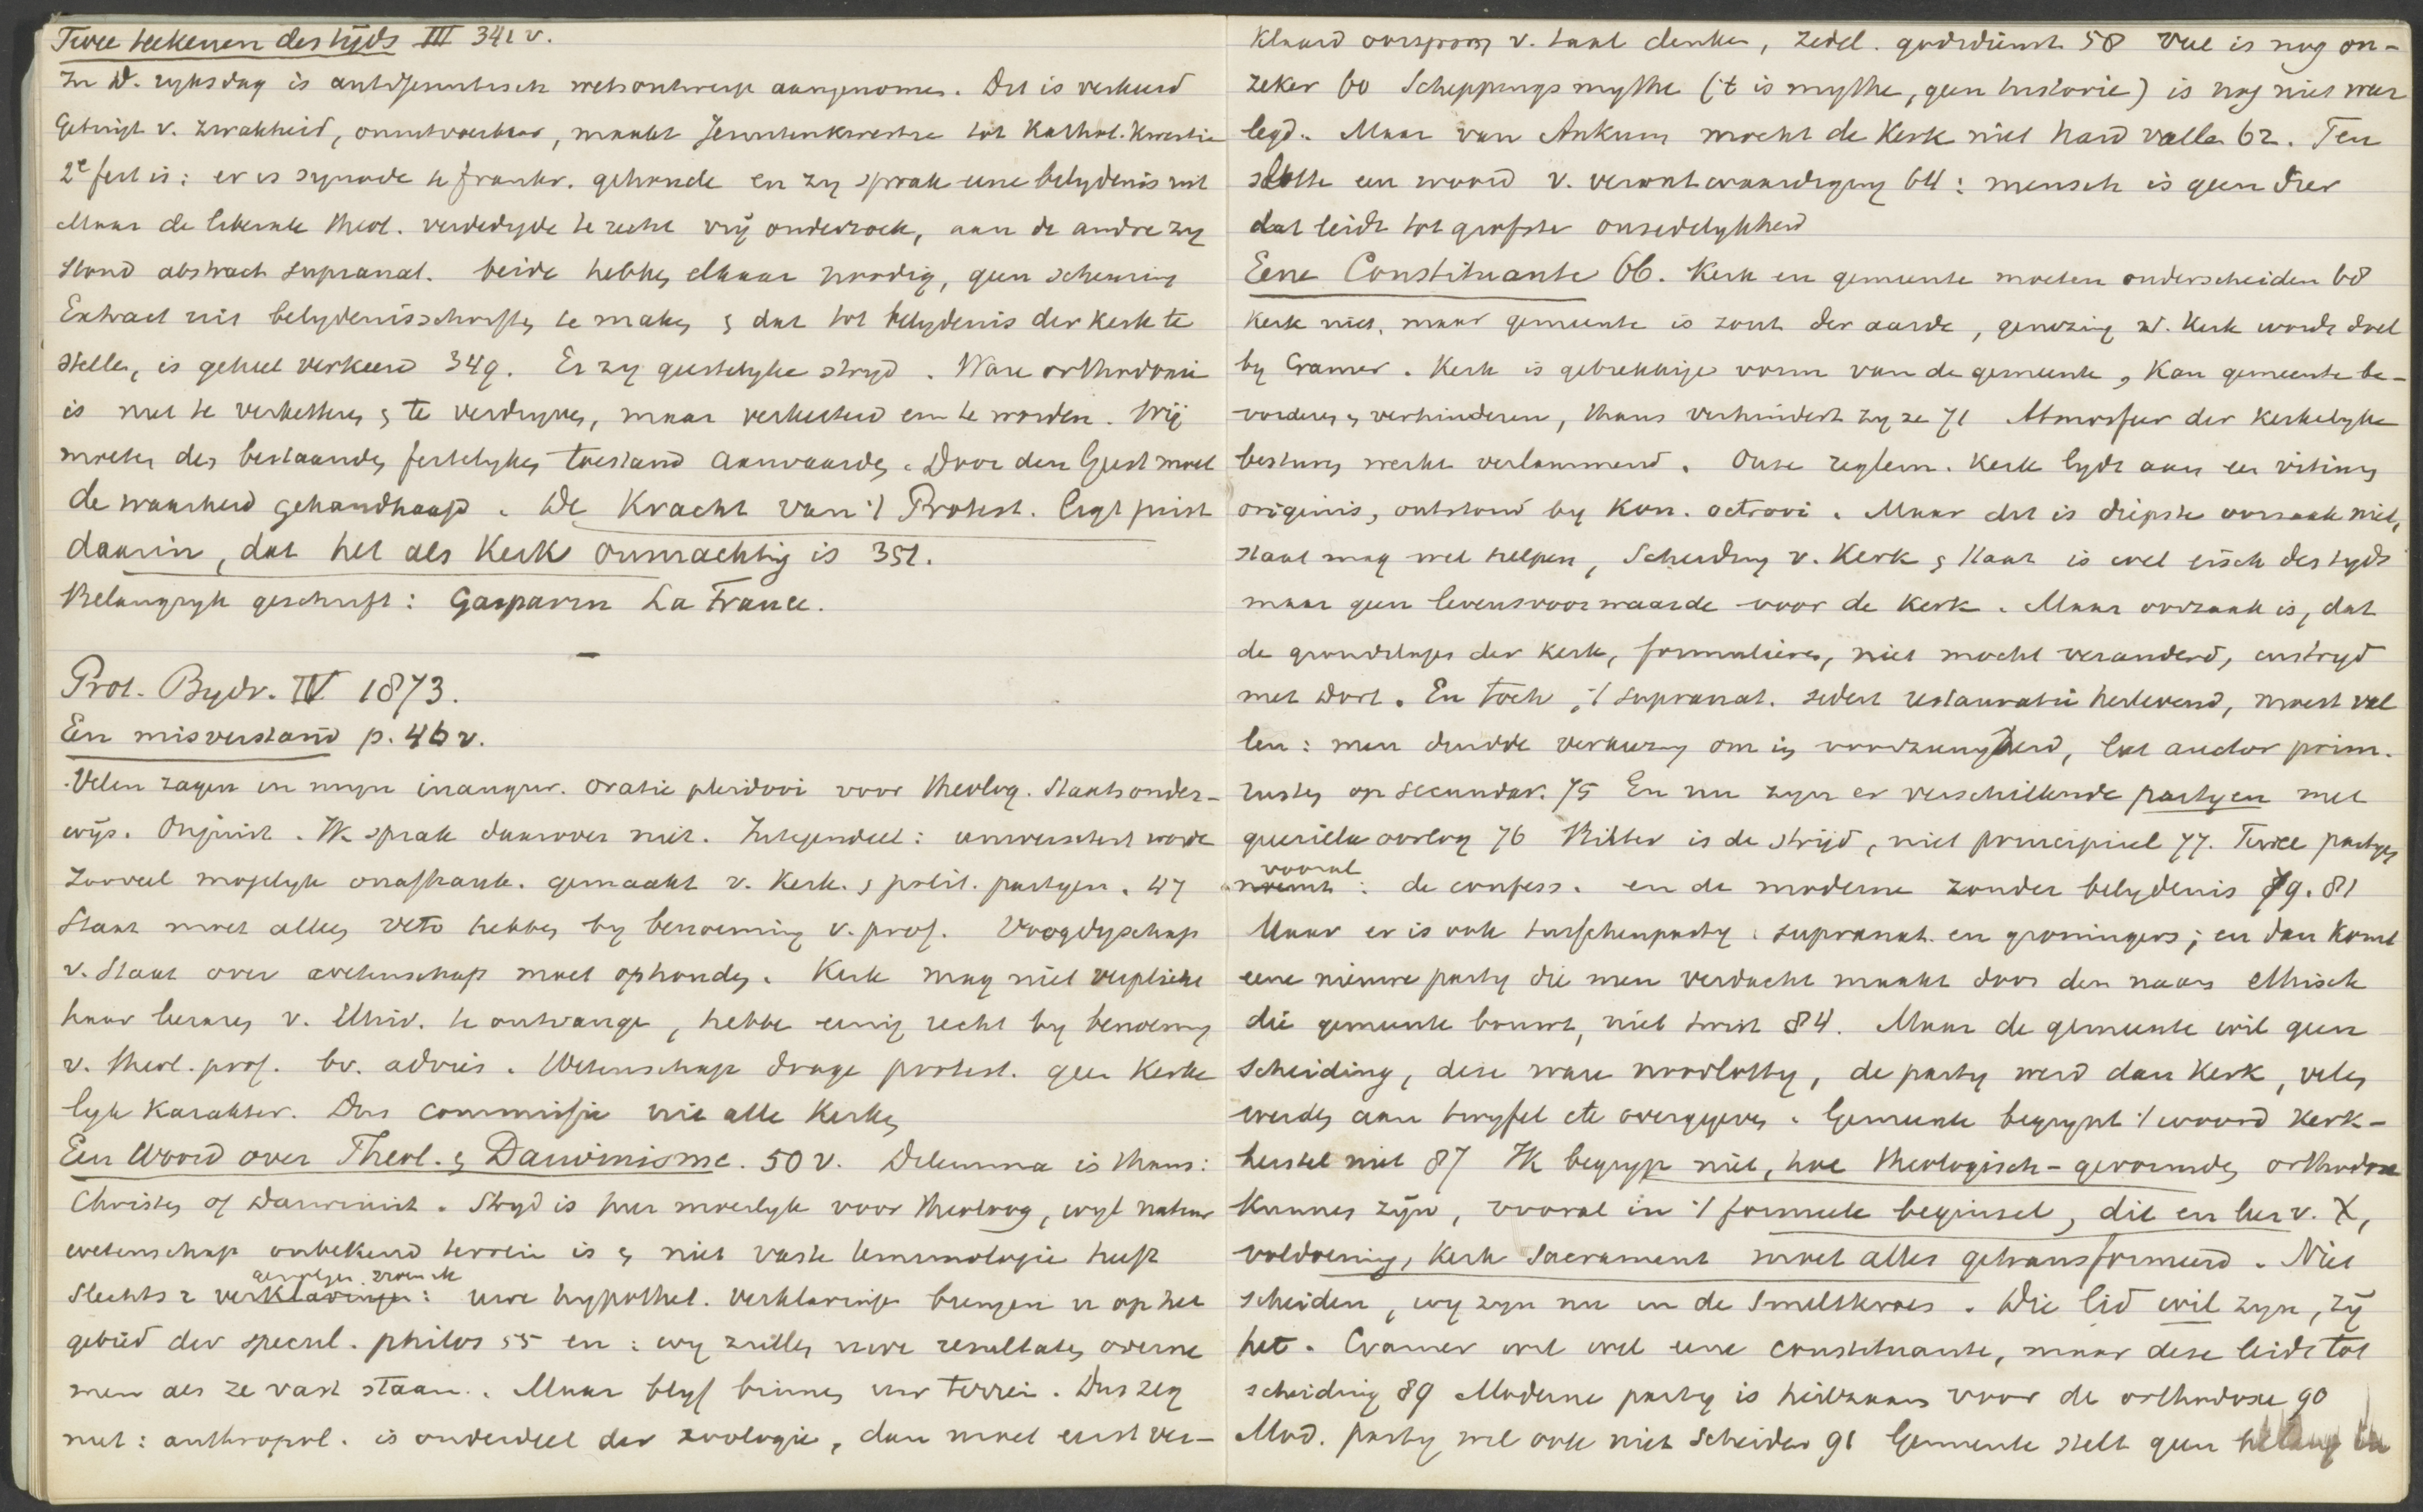 Twee teekenen des tijds III 341 v.
In D. ryksdag is antiJesuitisch wetsontwerp aangenomen. Dit is verkeerd
Getuigt v. zwakheid, onuitvoerbaar, maakt Jesuitenkwestie tot Kathol. Kwestie
2e feit is: er is synode te Frankr. gehouden en zy sprak eene belydenis uit
Maar de liberale theol. verdedigde te recht vrij onderzoek, aan de andre zy
stond abstract supranat. beide hebben elkaar noodig, geen scheuring
Extract uit belydenisschriften te maken & dat tot belydenis der kerk te
stellen, is geheel verkeerd 349. Er zy geestelyke stryd. Ware orthodoxie
is niet te verketteren & te verdryven, maar verketterd om te worden. Wij
moeten den bestaanden feitelyken toestand aanvaarden. Door den Geest moet
de waarheid gehandhaafd. De Kracht van 't Protest. ligt juist
daarin, dat het als Kerk onmachtig is 351.
Belangryk geschrift: Gasparin La France.
Prot. Bydr. IV 1873.
Een misverstand p. 46 v.
Velen zagen in mijn inaugur. oratie pleidooi voor theolog. Staatsonder-
wijs. Onjuist. Ik sprak daarover niet. Integendeel: universiteit worde
zooveel mogelyk onafhank. gemaakt v. Kerk. & polit. partyen. 47
Staat moet alleen veto hebben by benoeming v. prof. Voogdyschap
v. Staat over wetenschap moet ophouden. Kerk mag niet verplicht
haar leeraren v. Univ. te ontvangen, hebbe eenig recht by benoeming
v. theol. prof. bv. advies. Wetenschap drage protest. geen Kerke
lyk Karakter. Dus commissie uit alle Kerken
Een Woord over Theol. & Darwinisme. 50 v. Dilemma is thans:
Christen of Darwinist. Stryd is hier moeilyk voor theoloog, wyl natuur
wetenschap onbekend terrein is & niet vaste terminologie heeft
Slechts 2 verklaringen: uwe hypothet. verklaringen brengen u op het
gebied der specul. philos 55 en: wy zullen uwe resultaten overne
men als ze vast staan. Maar blyf binnen uw terrein. Dus zeg
niet: anthropol. is onderdeel der zoologie, dan moet eerst ver-
klaard oorsprong v. taal denken, zedel. godsdienst 58 Veel is nog on-
zeker 60 Scheppingsmythe ('t is mythe, geen historie) is nog niet weer
legd. Maar van Ankum mocht de Kerk niet hard vallen 62. Ten
slotte een woord v. verontwaardiging 64: mensch is geen dier
dat leidt tot grofste onzedelykheid
Eene Constituante 66. Kerk en gemeente moeten onderscheiden 68
Kerk niet, maar gemeente is zout der aarde, genezing d. Kerk wordt doel
by Cramer. Kerk is gebrekkige vorm van de gemeente, Kan gemeente be-
vorderen & verhinderen, thans verhindert zy ze 71 Atmosfeer der kerkelyke
besturen werkt verlammend. Onze reglem. Kerk lydt aan een vitium
originis, ontstond by Kon. octrooi. Maar dit is diepste oorzaak niet,
staat mag wel helpen, Scheiding v. Kerk & Staat is wel eisch des tyds
maar geen levensvoorwaarde voor de Kerk. Maar oorzaak is, dat
de grondslagen der kerk, formulieren, niet mocht veranderd, in stryd
met Dort. En toch, 't supranat. sedert restauratie herlevend, moest val
len: men duidde verkiezing om in voorzienigheid, liet auctor prim.
rusten op secundar. 75 En nu zyn er verschillende partyen met
guerilla oorlog 76 Bitter is de strijd, niet principieel 77. Twee partyen
vooral: de confess. en de moderne zonder belydenis 79. 81
Maar er is ook tusschenparty: supranat. en groningers; en dan komt
eene nieuwe party die men verdacht maakt door den naam ethisch
die gemeente bouwt, niet twist 84. Maar de gemeente wil geen
scheiding, deze ware noodlottig, de party werd dan Kerk, velen
werden aan twyfel etc overgegeven. Gemeente begrypt 't woord Kerk-
herstel niet 87 Ik begryp niet, hoe theologisch-gevormden orthodox
kunnen zijn, vooral in 't formeele beginsel, dit en leer v. X,
voldoening, Kerk Sacrament moet alles getransformeerd. Niet
scheiden, wy zyn nu in de smeltkroes. Wie lid wil zyn, zij
het. Cramer wil wel eene constituante, maar deze leidt tot
scheiding 89 Moderne party is heilzaam voor de orthodoxe 90
Mod. party wil ook niet scheiden 91 Gemeente stelt geen belang in